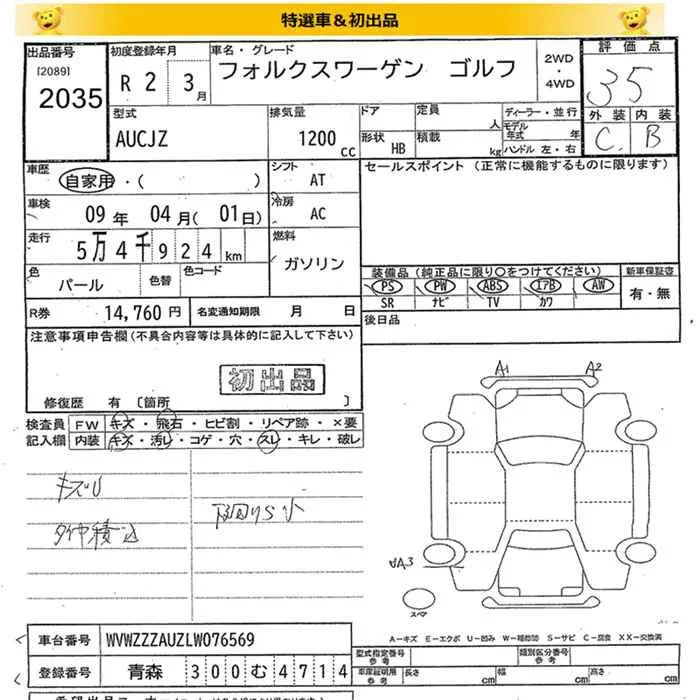 特選車＆初出品
出品番号 [2089] 2035
初度登録年月 R 2 3月
車名・グレード フォルクスワーゲン ゴルフ
2WD・4WD
評価点 35
外装 C 内装 B
型式 AUCJZ
排気量 1200cc
ドア 定員 人
ディーラー・並行
モデル年式 年
形状 HB 積載 kg ハンドル 左・右
車歴 自家用・( )
シフト AT
セールスポイント（正常に機能するものに限ります）
車検 09年 04月(01日)
冷房 AC
走行 5万4千924km
燃料 ガソリン
色 パール 色替 色コード
装備品（純正品に限り○をつけてください） 新車保証書
PS PW ABS エアB AW 有・無
SR ナビ TV カワ
R券 14,760円 名変通知期限 月 日
後日品
注意事項申告欄(不具合内容等は具体的に記入して下さい)
初出品
修復歴 有 [箇所 ]
検査員記入欄 FW キズ・飛石・ヒビ割・リペア跡・×要
内装 キズ・汚レ・コゲ・穴・スレ・キレ・破レ
A1 A2
キズU
下回りS小
A3
スペア
A－キズ E－エクボ U－凹み W－補修跡 S－サビ C－腐食 XX－交換済
車台番号 WVWZZZAUZLW076569
型式指定番号 参考 類別区分番号 参考
登録番号 青森 300む4714
車庫証明用 参考 長さ cm 幅 cm 高さ cm